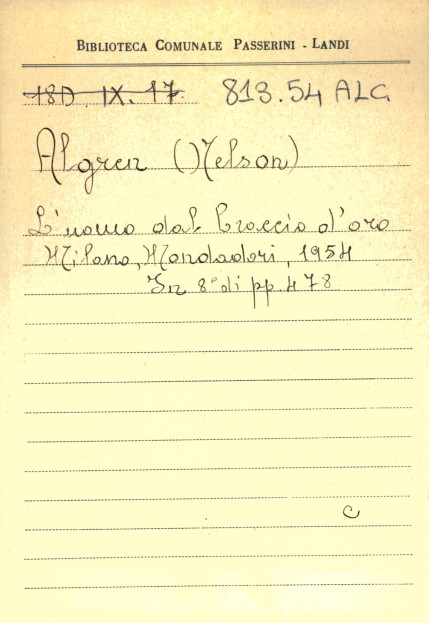 BIBLIOTECA COMUNALE PASSERINI - LANDI
18D. IX. 17. 813.54 ALG
Algren (Nelson)
L'uomo dal braccio d'oro
Milano, Mondadori, 1954
In 8° di pp. 478
C